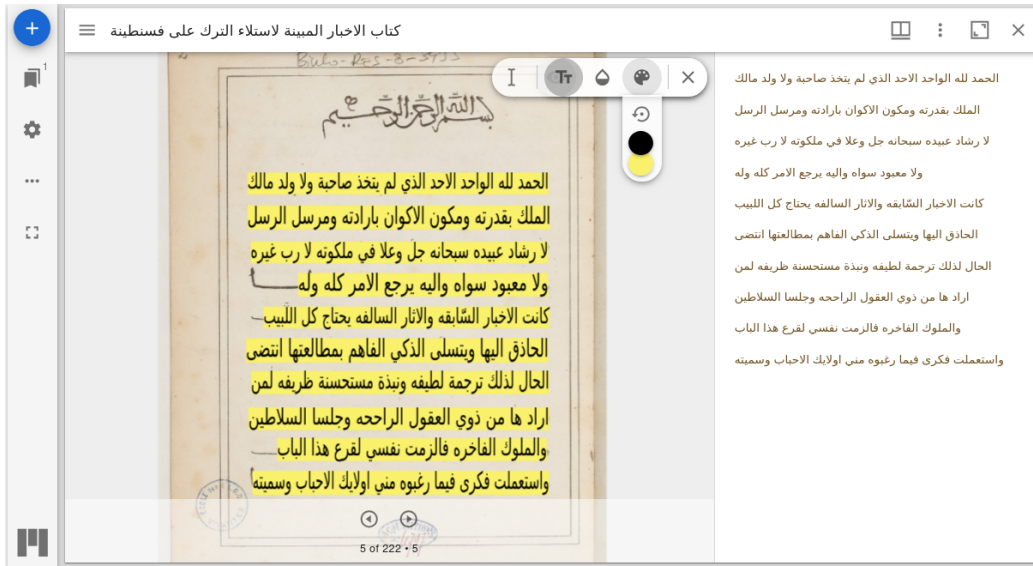 كتاب الاخبار المبينة لاستلاء الترك على قسنطينة
1
بسم الله الرحمن الرحيم
الحمد لله الواحد الاحد الذي لم يتخذ صاحبة ولا ولد مالك
الملك بقدرته ومكون الاكوان بارادته ومرسل الرسل
لا رشاد عبيده سبحانه جل وعلا في ملكوته لا رب غيره
ولا معبود سواه واليه يرجع الامر كله وله
كانت الاخبار السّابقه والاثار السالفه يحتاج كل اللبيب
الحاذق اليها ويتسلى الذكي الفاهم بمطالعتها انتضى
الحال لذلك ترجمة لطيفه ونبذة مستحسنة ظريفه لمن
اراد ها من ذوي العقول الراححه وجلسا السلاطين
والملوك الفاخره فالزمت نفسي لقرع هذا الباب
واستعملت فكرى فيما رغبوه مني اولايك الاحباب وسميته
5 of 222 • 5
الحمد لله الواحد الاحد الذي لم يتخذ صاحبة ولا ولد مالك
الملك بقدرته ومكون الاكوان بارادته ومرسل الرسل
لا رشاد عبيده سبحانه جل وعلا في ملكوته لا رب غيره
ولا معبود سواه واليه يرجع الامر كله وله
كانت الاخبار السّابقه والاثار السالفه يحتاج كل اللبيب
الحاذق اليها ويتسلى الذكي الفاهم بمطالعتها انتضى
الحال لذلك ترجمة لطيفه ونبذة مستحسنة ظريفه لمن
اراد ها من ذوي العقول الراححه وجلسا السلاطين
والملوك الفاخره فالزمت نفسي لقرع هذا الباب
واستعملت فكرى فيما رغبوه مني اولايك الاحباب وسميته